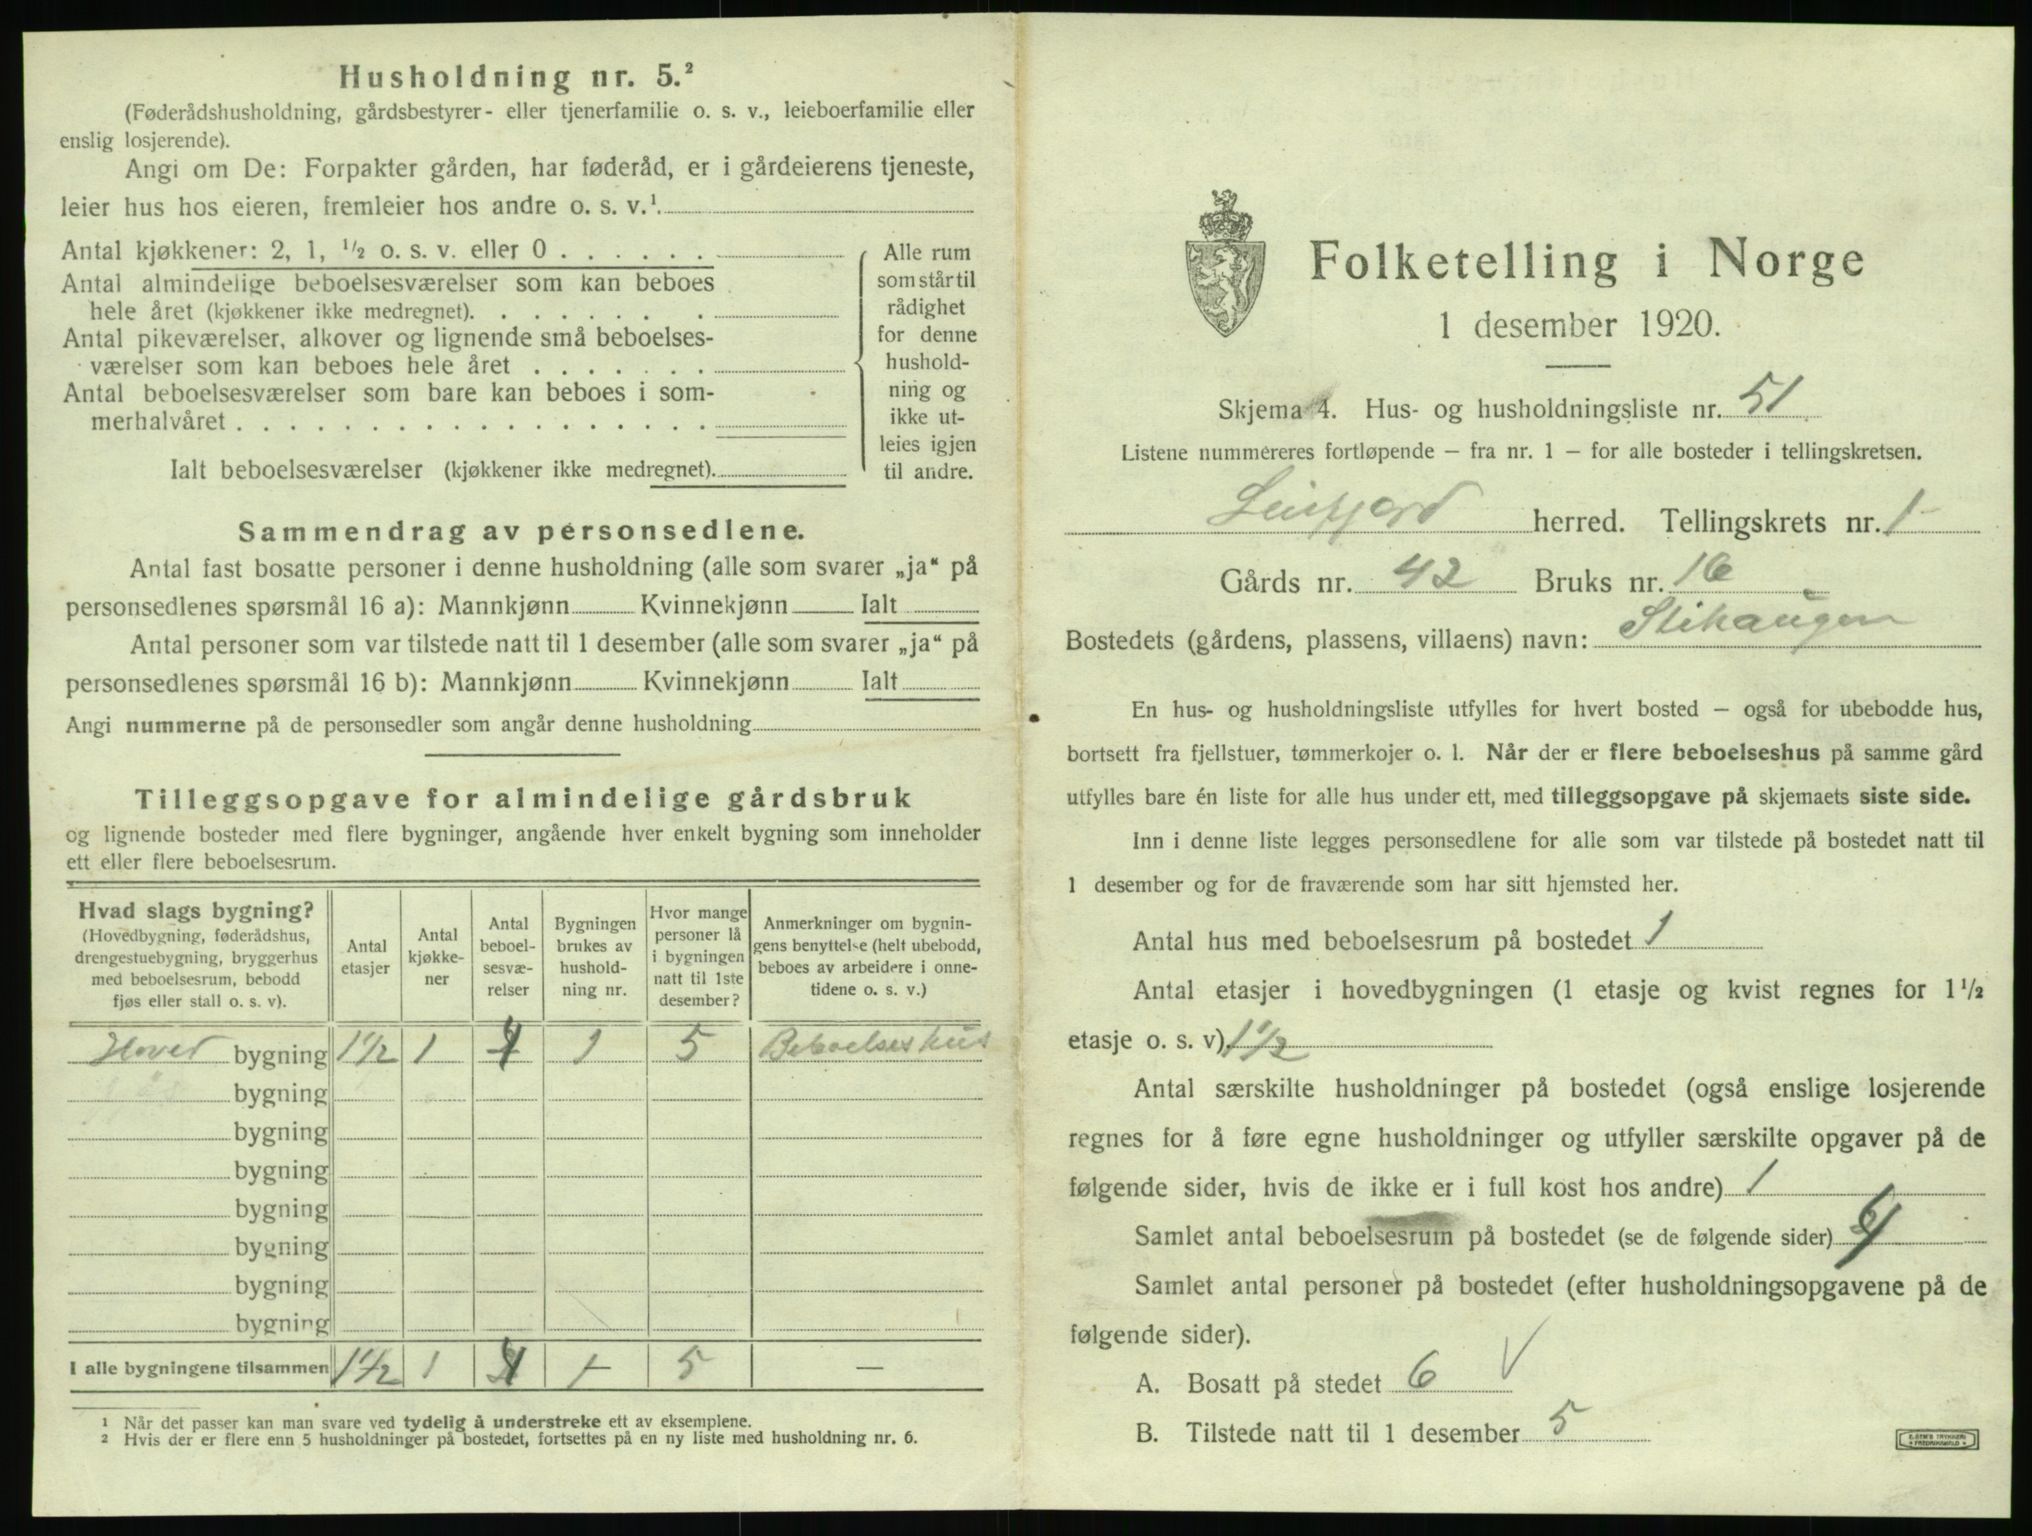 Husholdning nr. 5.²
(Føderådshusholdning, gårdsbestyrer- eller tjenerfamilie o. s. v., leieboerfamilie eller
enslig losjerende).
Angi om De: Forpakter gården, har føderåd, er i gårdeierens tjeneste,
leier hus hos eieren, fremleier hos andre o. s. v.¹.
Antal kjøkkener: 2, 1, ½ o. s. v. eller 0 . . . . . .
Antal almindelige beboelsesværelser som kan beboes
hele året (kjøkkener ikke medregnet). . . . . . . .
Antal pikeværelser, alkover og lignende små beboelses-
værelser som kan beboes hele året . . . . . . .
Antal beboelsesværelser som bare kan beboes i som-
merhalvåret . . . . . . . . . . . . . . . . . .
Ialt beboelsesværelser (kjøkkener ikke medregnet).
Alle rum
som står til
rådighet
for denne
hushold-
ning og
ikke ut-
leies igjen
til andre.
Sammendrag av personsedlene.
Antal fast bosatte personer i denne husholdning (alle som svarer „ja“ på
personsedlenes spørsmål 16 a): Mannkjønn Kvinnekjønn Ialt
Antal personer som var tilstede natt til 1 desember (alle som svarer „ja“ på
personsedlenes spørsmål 16 b): Mannkjønn Kvinnekjønn Ialt
Angi nummerne på de personsedler som angår denne husholdning
Tilleggsopgave for almindelige gårdsbruk
og lignende bosteder med flere bygninger, angående hver enkelt bygning som inneholder
ett eller flere beboelsesrum.
Hvad slags bygning?
(Hovedbygning, føderådshus,
drengestuebygning, bryggerhus
med beboelsesrum, bebodd
fjøs eller stall o. s. v).
Antal
etasjer
Antal
kjøkke-
ner
Antal
beboel-
sesvæ-
relser
Bygningen
brukes av
hushold-
ning nr.
Hvor mange
personer lå
i bygningen
natt til 1ste
desember?
Anmerkninger om bygnin-
gens benyttelse (helt ubebodd,
beboes av arbeidere i onne-
tidene o. s. v.)
Hoved bygning 1½ 1 4 1 5 Beboelseshus
bygning
bygning
bygning
bygning
bygning
bygning
bygning
I alle bygningene tilsammen 1½ 1 4 1 5 —
¹ Når det passer kan man svare ved tydelig å understreke ett av eksemplene.
² Hvis der er flere enn 5 husholdninger på bostedet, fortsettes på en ny liste med husholdning nr. 6.
Folketelling i Norge
1 desember 1920.
Skjema 4. Hus- og husholdningsliste nr. 51
Listene nummereres fortløpende – fra nr. 1 – for alle bosteder i tellingskretsen.
herred. Tellingskrets nr. 1
Gårds nr. 42 Bruks nr. 16
Bostedets (gårdens, plassens, villaens) navn: Stihaugen
En hus- og husholdningsliste utfylles for hvert bosted – også for ubebodde hus,
bortsett fra fjellstuer, tømmerkojer o. l. Når der er flere beboelseshus på samme gård
utfylles bare én liste for alle hus under ett, med tilleggsopgave på skjemaets siste side.
Inn i denne liste legges personsedlene for alle som var tilstede på bostedet natt til
1 desember og for de fraværende som har sitt hjemsted her.
Antal hus med beboelsesrum på bostedet 1
Antal etasjer i hovedbygningen (1 etasje og kvist regnes for 1½
etasje o. s. v). 1½
Antal særskilte husholdninger på bostedet (også enslige losjerende
regnes for å føre egne husholdninger og utfyller særskilte opgaver på de
følgende sider, hvis de ikke er i full kost hos andre) 1
Samlet antal beboelsesrum på bostedet (se de følgende sider) 4
Samlet antal personer på bostedet (efter husholdningsopgavene på de
følgende sider).
A. Bosatt på stedet 6
B. Tilstede natt til 1 desember 5